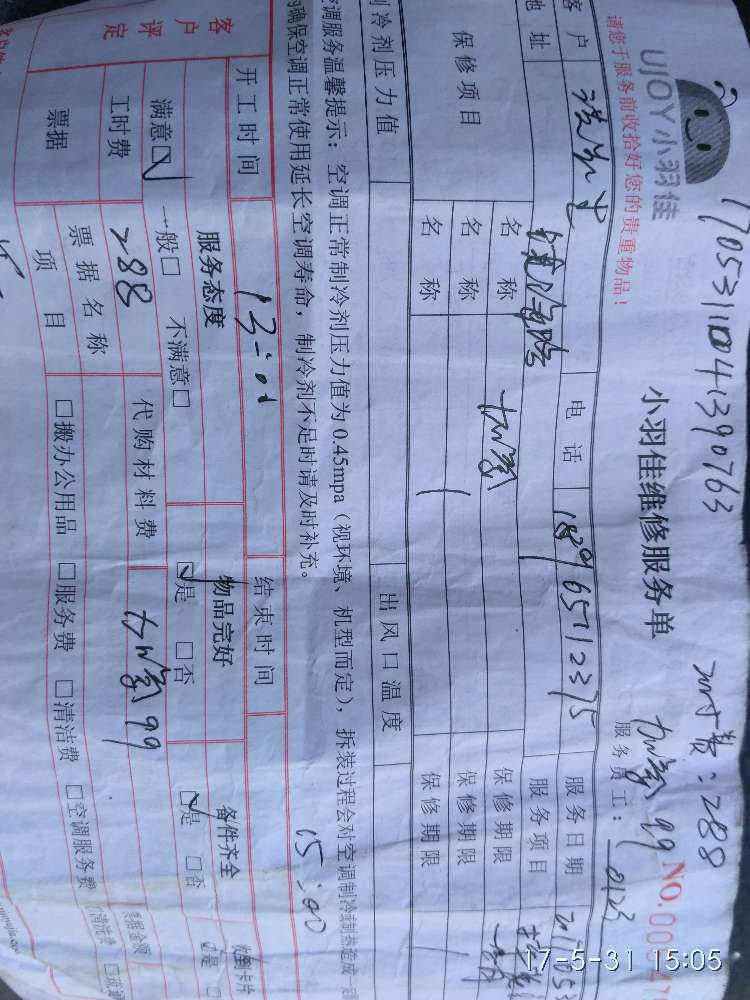 17053110041390763
UJOY小羽佳
请您于服务前收拾好您的贵重物品！
小羽佳维修服务单
对费：288
加氨99
服务员工：0123
NO.000
客户
电话
服务日期
地址
服务项目
保修项目
名称
加氨
保修期限
名称
保修期限
名称
保修期限
制冷剂压力值
出风口温度
空调服务温馨提示：空调正常制冷剂压力值为0.45mpa（视环境、机型而定），拆装过程会对空调制冷或制热造成一定
确保空调正常使用延长空调寿命，制冷剂不足时请及时补充。
开工时间
13:01
结束时间
15:00
客户评定
服务态度
物品完好
备件齐全
收到卡片
满意☑ 一般□ 不满意□
☑是 □否
☑是 □否
☑是
工时费
288
代购材料费
加氨99
票据金额
票据
票据名称
项目
□搬办公用品 □服务费 □清洁费 □空调服务费
17-5-31 15:05